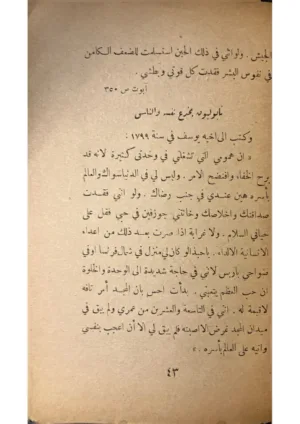 الجيش . ولو انني في ذلك الحين استسلمت للضعف الكامن
في نفوس البشر فقدت كل قوتي وبطشي .
أبوت ص ٣٥٠
نابوليون يخدع نفسه والناس
وكتب الى اخيه يوسف في سنة ١٧٩٩ :
« ان همومي التي تشغلني في وحدتي كثيرة لانه قد
برح الخفاء وافتضح الامر . وليس لي في الدنيا سواك والعالم
بأسره هين عندي في جنب رضاك . ولو انني فقدت
صداقتك واخلاصك وخانتني جوزفين في حبي فقل على
حياتي السلام . ولا غرابة اذا صرت بعد ذلك من اعداء
الانسانية الالداء . يا حبذا لو كان لي منزل في شمال فرنسا او في
ضواحي باريس لاني في حاجة شديدة الى الوحدة والخلوة
ان حب العظم يتعبني . بدأت احس بان المجد أمر تافه
لا قيمة له . انني في التاسعة والعشرين من عمري ولم يبق في
ميدان المجد غرض الا اصبته فلم يبق لي الا أن اعجب بنفسي
واتيه على العالم بأسره . »
٤٣